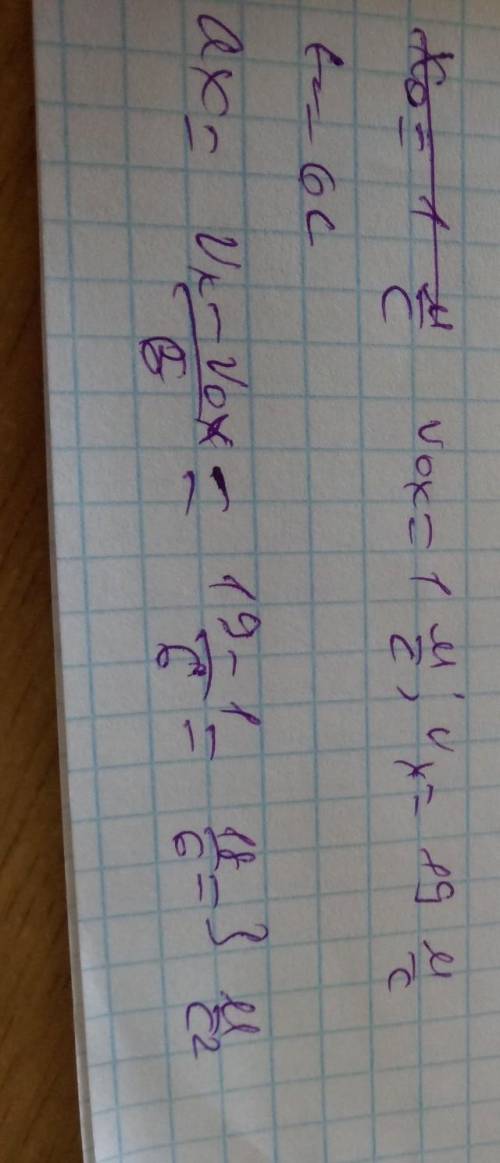 v₀ₓ = 1 м/с; vₓ = 19 м/с
t = 6 с
aₓ = (vₓ − v₀ₓ)/t = (19 − 1)/6 = 18/6 = 3 м/с²